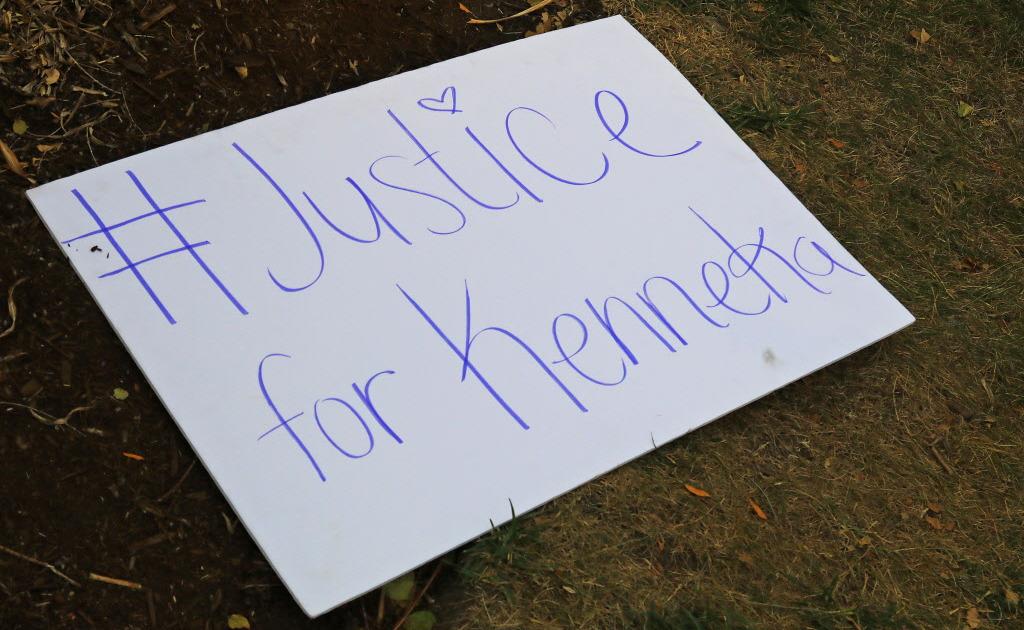 #Justice
for Kenneka